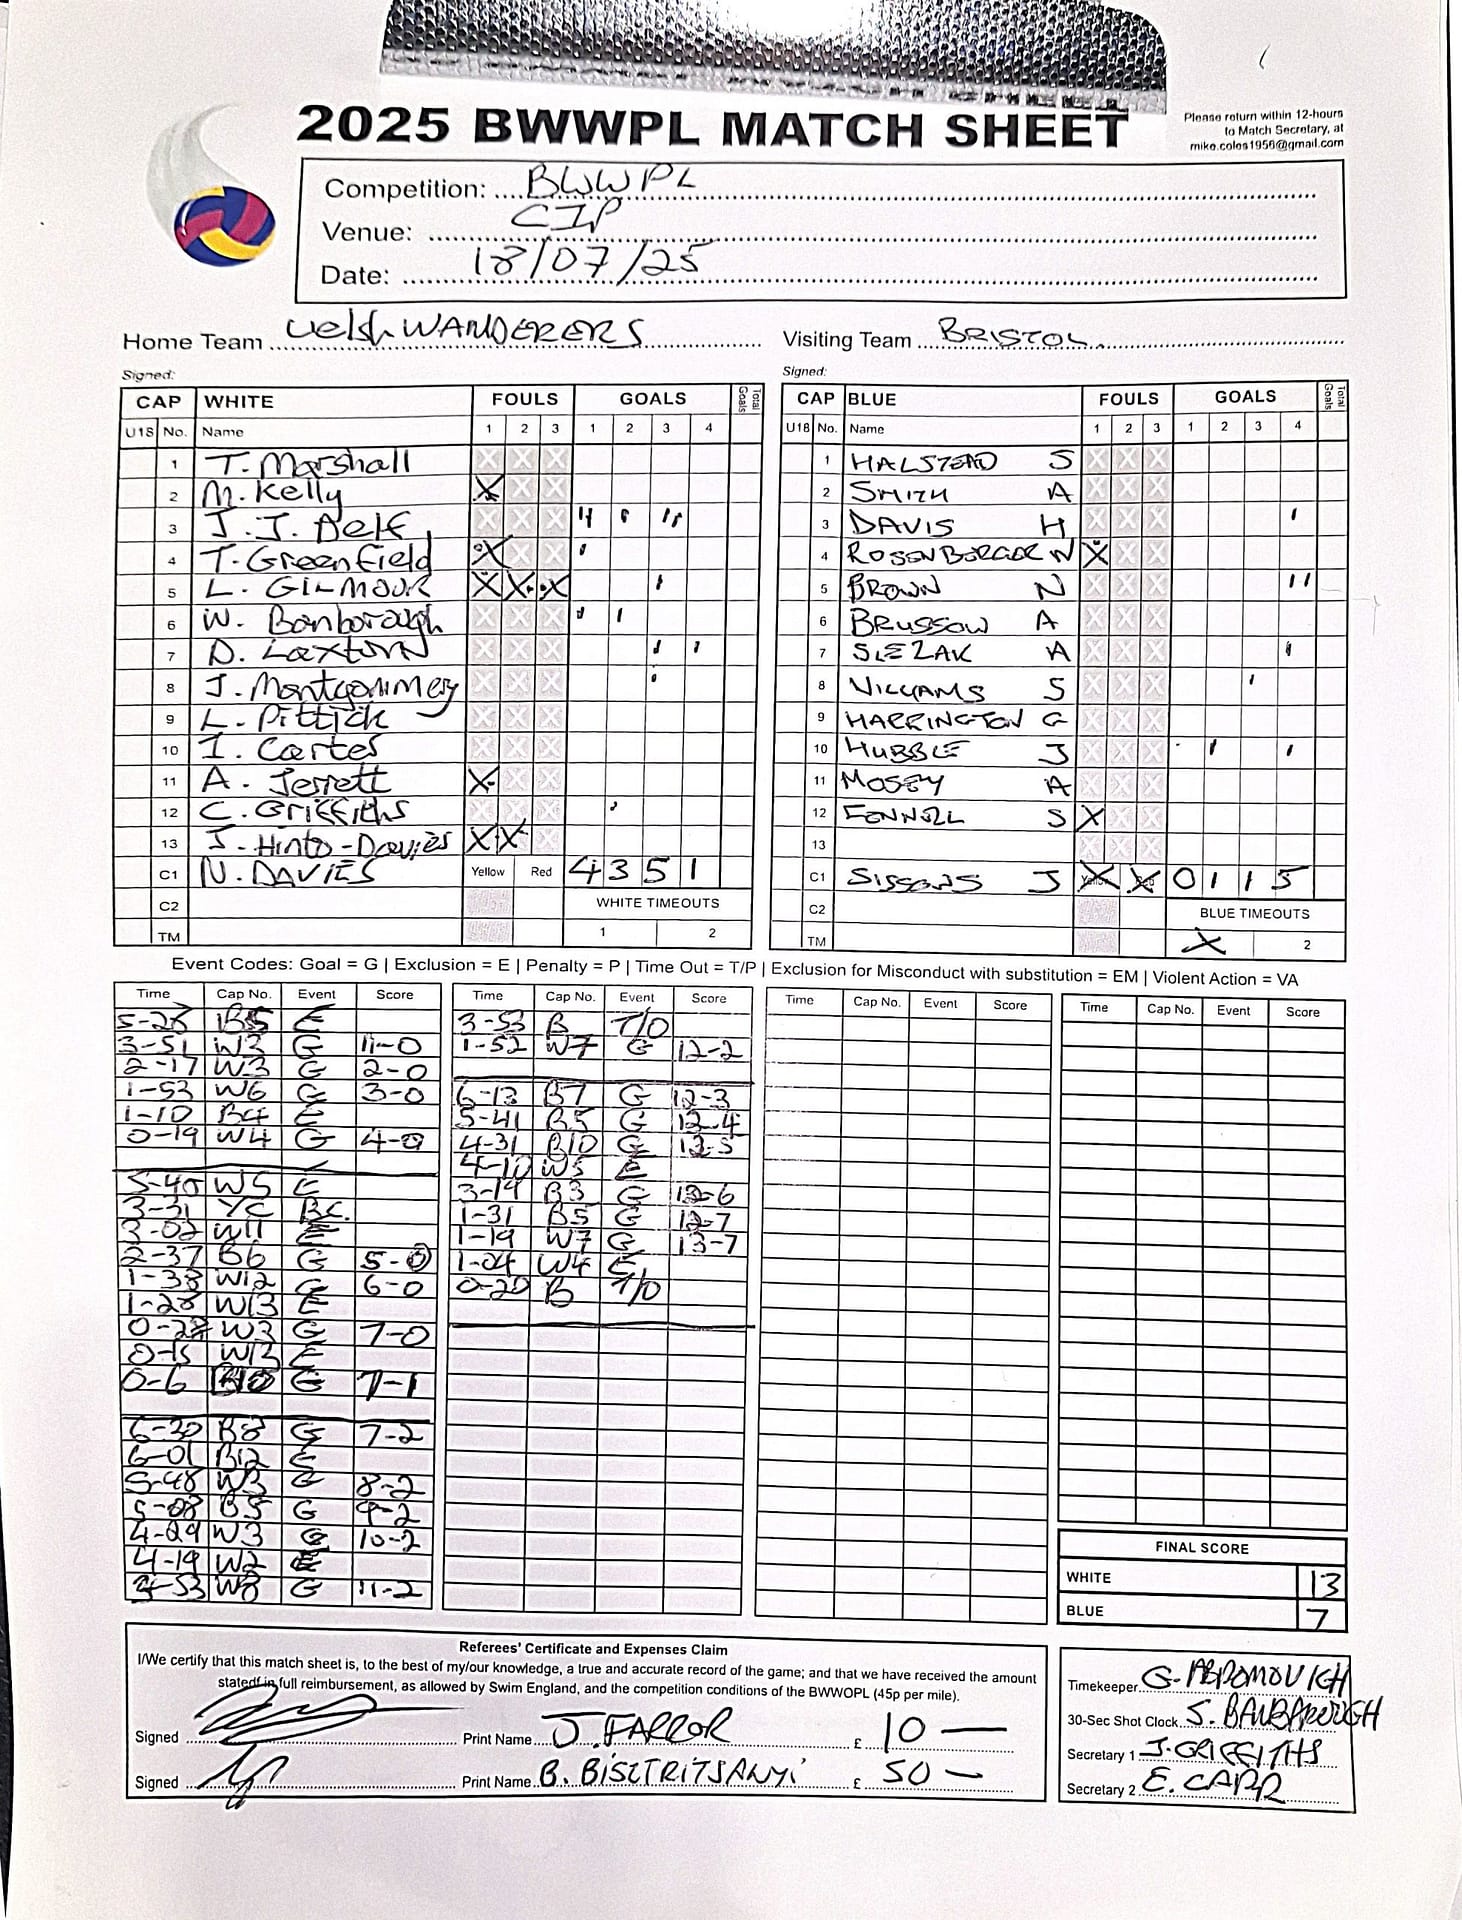 2025 BWWPL MATCH SHEET
Please return within 12-hours
to Match Secretary, at
mike.coles1956@gmail.com
Competition: BWWPL
Venue: CIP
Date: 18/07/25
Home Team Welsh WANDERERS
Visiting Team BRISTOL
Signed:
Signed:
CAP WHITE FOULS GOALS Total Goals
U18 No. Name 1 2 3 1 2 3 4
1 T. Marshall
2 M. Kelly X
3 J.J. Delf
4 T. Greenfield X
5 L. GILMOUR X X X
6 W. Banborough
7 D. Laxton
8 J. Montgommery
9 L. Pittick
10 I. Cartes
11 A. Jerrett X
12 C. Griffiths
13 J. Hinto-Davies X X
C1 N. DAVIES Yellow Red 4 3 5 1
C2 WHITE TIMEOUTS
TM 1 2
CAP BLUE FOULS GOALS Total Goals
U18 No. Name 1 2 3 1 2 3 4
1 HALSTEAD S
2 SMITH A
3 DAVIS H
4 ROSENBERGER N X
5 BROWN N
6 BRUSSOW A
7 SLEZAK A
8 WILLIAMS S
9 HARRINGTON G
10 HUBBLE J
11 MOSEY A
12 FENNELL S X
13
C1 SISSONS J X X 0 1 1 5
C2 BLUE TIMEOUTS
TM X 2
Event Codes: Goal = G | Exclusion = E | Penalty = P | Time Out = T/P | Exclusion for Misconduct with substitution = EM | Violent Action = VA
Time Cap No. Event Score
5-28 B5 E
3-51 W3 G 11-0
2-17 W3 G 2-0
1-53 W6 G 3-0
1-10 B4 E
0-19 W4 G 4-0
5-40 W5 E
3-31 YC BC.
3-02 W11 E
2-37 B6 G 5-0
1-38 W12 G 6-0
1-28 W13 E
W3 G 7-0
0-15 W13 E
0-6 B10 G 7-1
6-30 B8 G 7-2
6-01 B12 E
5-48 W3 G 8-2
5-08 B5 G 9-2
4-29 W3 G 10-2
4-19 W2 E
3-53 W8 G 11-2
Time Cap No. Event Score
3-53 B T/O
1-52 W7 G 12-2
6-13 B7 G 12-3
5-41 B5 G 12-4
4-31 B10 G 12-5
4-10 W5 E
3-19 B3 G 12-6
1-31 B5 G 12-7
1-19 W7 G 13-7
1-04 W4 E
0-20 B T/O
Time Cap No. Event Score
Time Cap No. Event Score
FINAL SCORE
WHITE 13
BLUE 7
Referees' Certificate and Expenses Claim
I/We certify that this match sheet is, to the best of my/our knowledge, a true and accurate record of the game; and that we have received the amount
stated in full reimbursement, as allowed by Swim England, and the competition conditions of the BWWOPL (45p per mile).
Signed Print Name J. FARROR £ 10 —
Signed Print Name B. BISZTRITSANYI £ 50 —
Timekeeper G. ABROMOVICH
30-Sec Shot Clock S. BANBOROUGH
Secretary 1 J. GRIFFITHS
Secretary 2 E. CARR